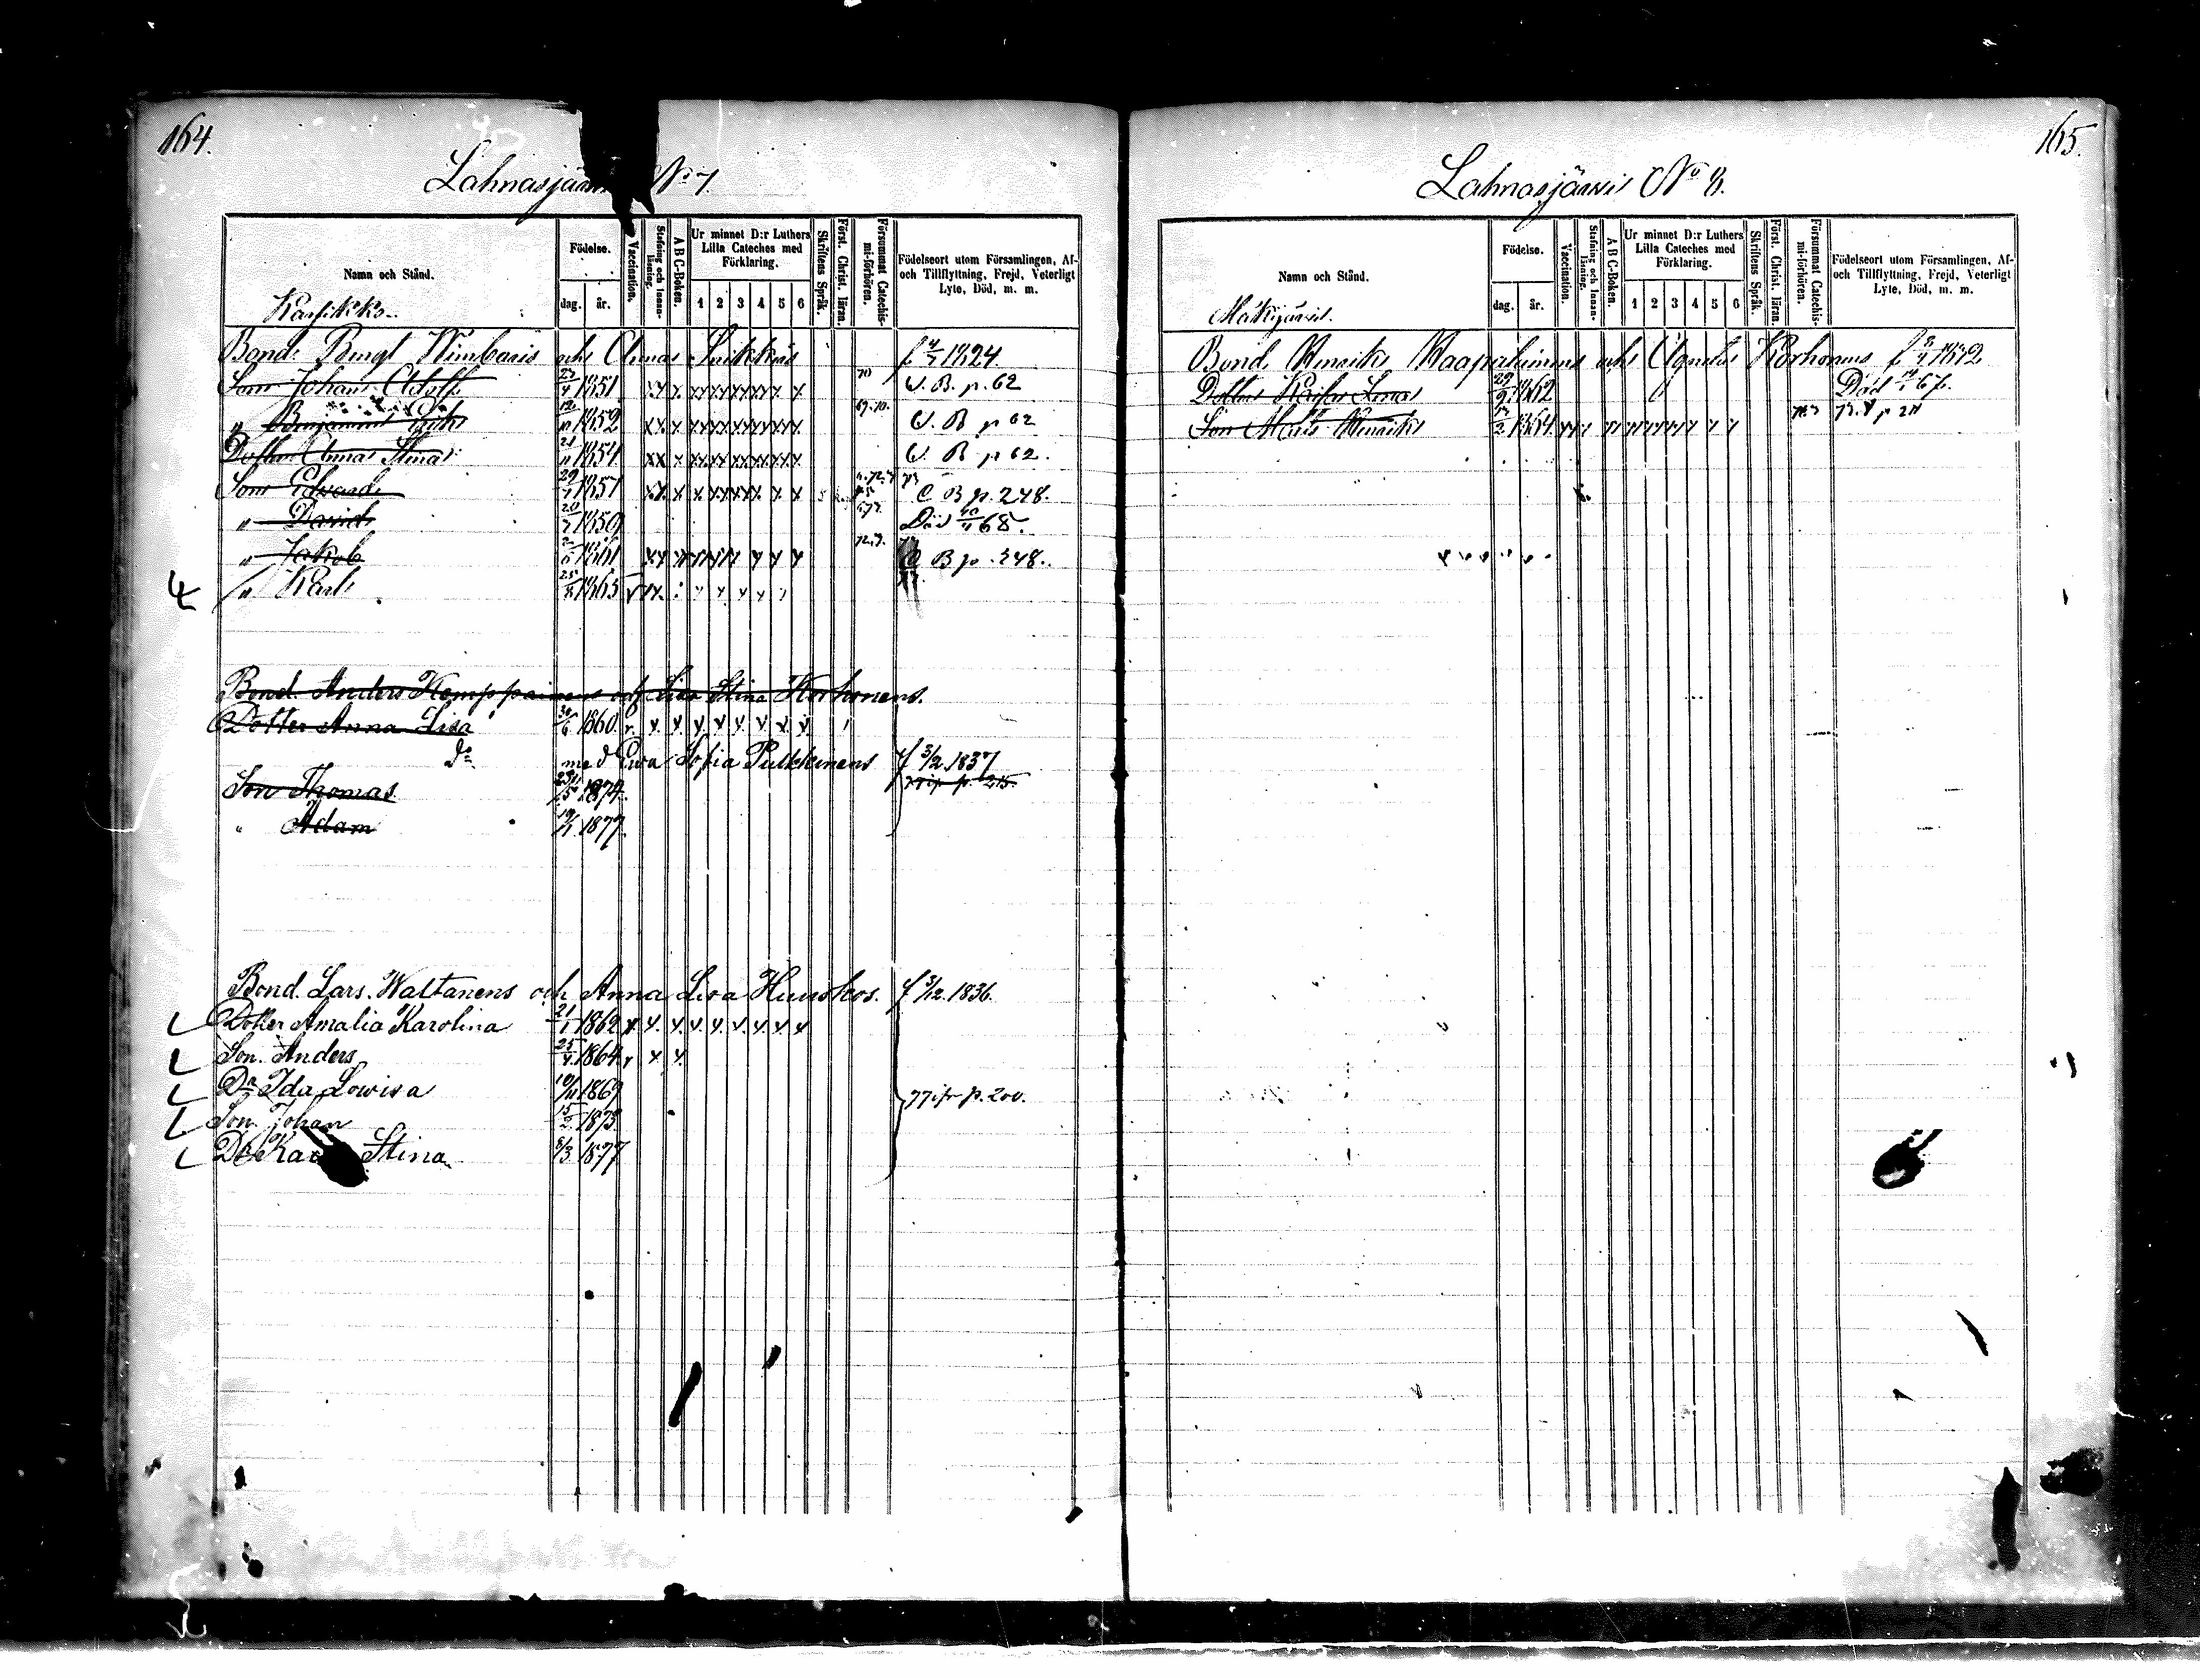 164.
Lahnasjär N:o 7
Namn och Stånd.
Födelse.
dag.
år.
Vaccination.
Stafning och Innan-läsning.
A B C-Boken.
Ur minnet D:r Luthers Lilla Cateches med Förklaring.
1 2 3 4 5 6
Skriftens Språk.
Först. Christ. läran.
Försummat Catechis-mi-förhören.
Födelseort utom Församlingen, Af- och Tillflyttning, Frejd, Veterligt Lyte, Död, m. m.
Karsikko
Bond. Bengt Kimbaris och Annas f 1824
Son Johan Adolf 23/4 1851 x x x x x x x x x x 70 C. B. p. 62
" Benjamin 1852 x x x x x x x x x x 69.70. C. B p 62
Dotter Anna Stina 21/11 1854 x x x x x x x x x C. B p 62.
Son Edvard 29/1 1857 x x x x x x x x x C B p. 248.
" David 20/2 1859 Död 68.
" Jakob 1861 x x x x x x x x x 72.7. C B p. 248.
" Karl 25 1865
Bond. Anders Kemppainens och Lisa Stina Korhonens.
Dotter Anna Lisa 30/6 1860. x. x. x. x. x. x. x. x. x.
D:o med Ewa Sofia Pulkkinens f 3/2. 1837
Son Thomas 1874. 77 p. 215.
" Adam 19/11 1877.
Bond. Lars. Waltanens och Anna Lisa Huuskos. f 3/12. 1836.
Dotter Amalia Karolina 21/1 1862 x. x. x. x. x. x. x. x. x
Son. Anders 25/4. 1864. x x x
D:r Ida Lowisa 10/11 1869 77 p. 200.
Son. Johan 15/2 1873
D:r Ka Stina 8/3 1877
165.
Lahnasjärwi N:o 8.
Namn och Stånd.
Födelse.
dag.
år.
Vaccination.
Stafning och Innan-läsning.
A B C-Boken.
Ur minnet D:r Luthers Lilla Cateches med Förklaring.
1 2 3 4 5 6
Skriftens Språk.
Först. Christ. läran.
Försummat Catechis-mi-förhören.
Födelseort utom Församlingen, Af- och Tillflyttning, Frejd, Veterligt Lyte, Död, m. m.
Mäkijärwi.
Bond. Henrik Haapalainens och Agneta Korhonens f
Dotter Kaisa Lena 29/9 1862 Död 67.
Son Mats Henrik 1864